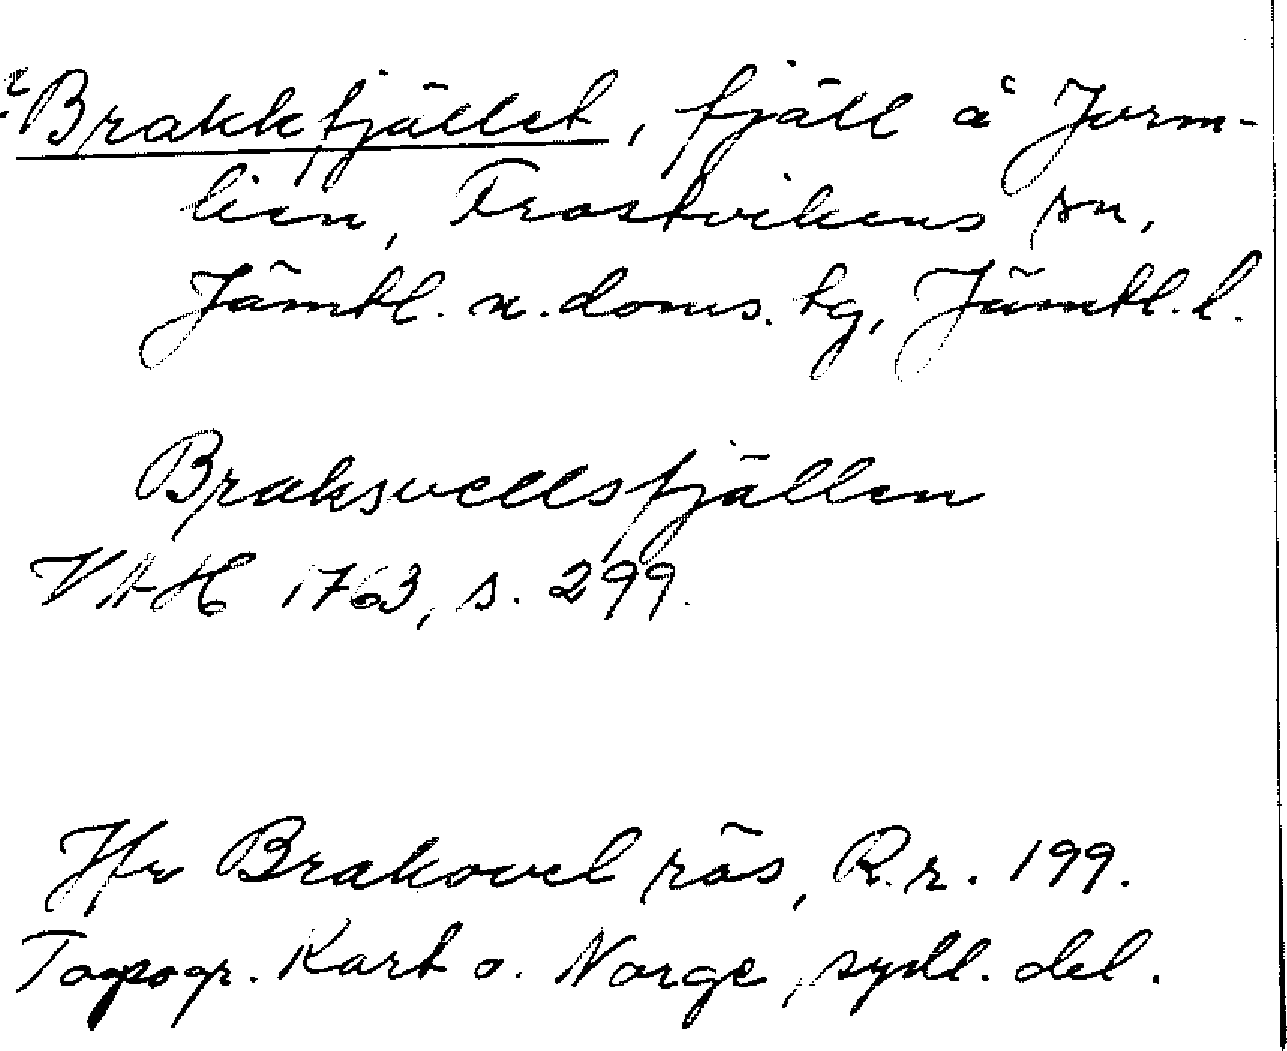 Brakkfjället, fjäll å Jorm-
lien, Frostvikens sn,
Jämtl. n. doms. tg, Jämtl. l.
Braksvellsfjällen
VAH 1763, s. 299.
Jfr Brakovel rös, R.r. 199.
Topogr. Kart o. Norge, sydl. del.